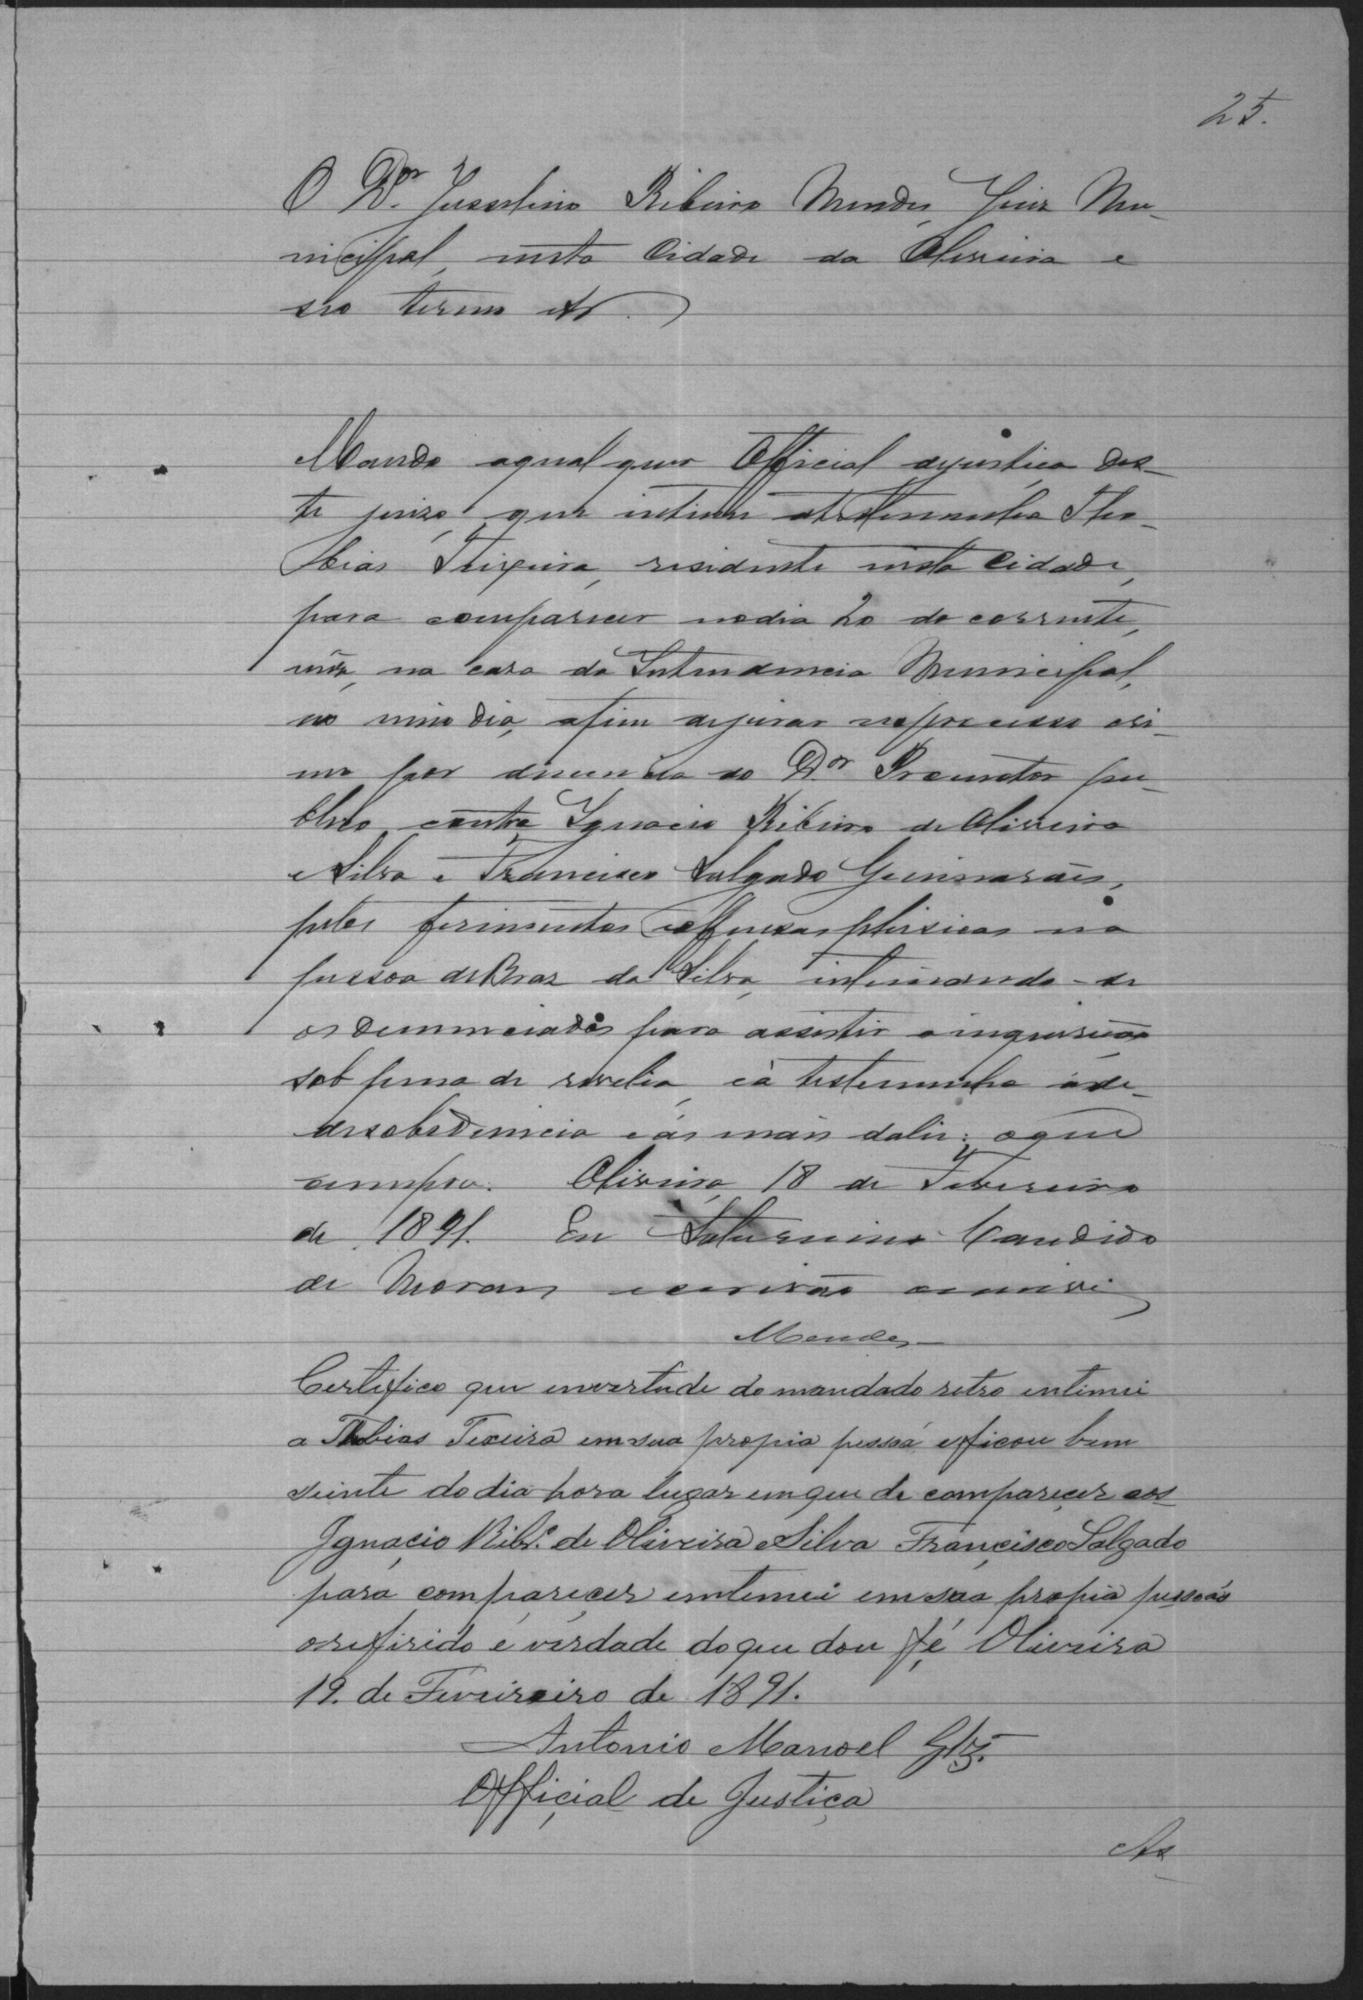 25.
O Dor Jusselino Ribeiro Mendes, Juiz Mu-
nicipal, nesta Cidade da Oliveira e
seo termo etc.
Mando aqualquer Official dejustiça des-
te juizo, que intime atestemunha Tho-
bias Teixeira, residente nesta Cidade,
para comparecer nodia 20 do corrente,
mês, na casa da Intendencia Municipal,
ao meio dia, afim dejurar noprocesso cri-
me por denuncia do Dor Promotor pu-
blico contra Ignacio Ribeiro de Oliveira
e Silva e Francisco Salgado Guimarães,
pelos ferimentos eoffensas phisicas na
pessoa de Braz da Silva, intimando-se
os denunciados para assistir a inquirição
sob pena de revelia, e á testemunha á de
desobediencia e ás mais dalei: oque
cumpra. Oliveira, 18 de Fevereiro
de 1891. Eu Saturnino Candido
de Moraes escrivão escrevi
Mendes
Certifico que emvertude do mandado retro entimei
a Thobias Texeira em sua propia pessoa eficou bem
siente do dia hora lugar emque de compareçer eos
Ignaçio Ribro de Oliveira e Silva Françisco Salgado
para compareçer emtemei em sua propia pessoas
orefirido é verdade do que dou fé Oliveira
19. de Fevireiro de 1891.
Antonio Manoel Glz.
Offiçial de Justiça
As